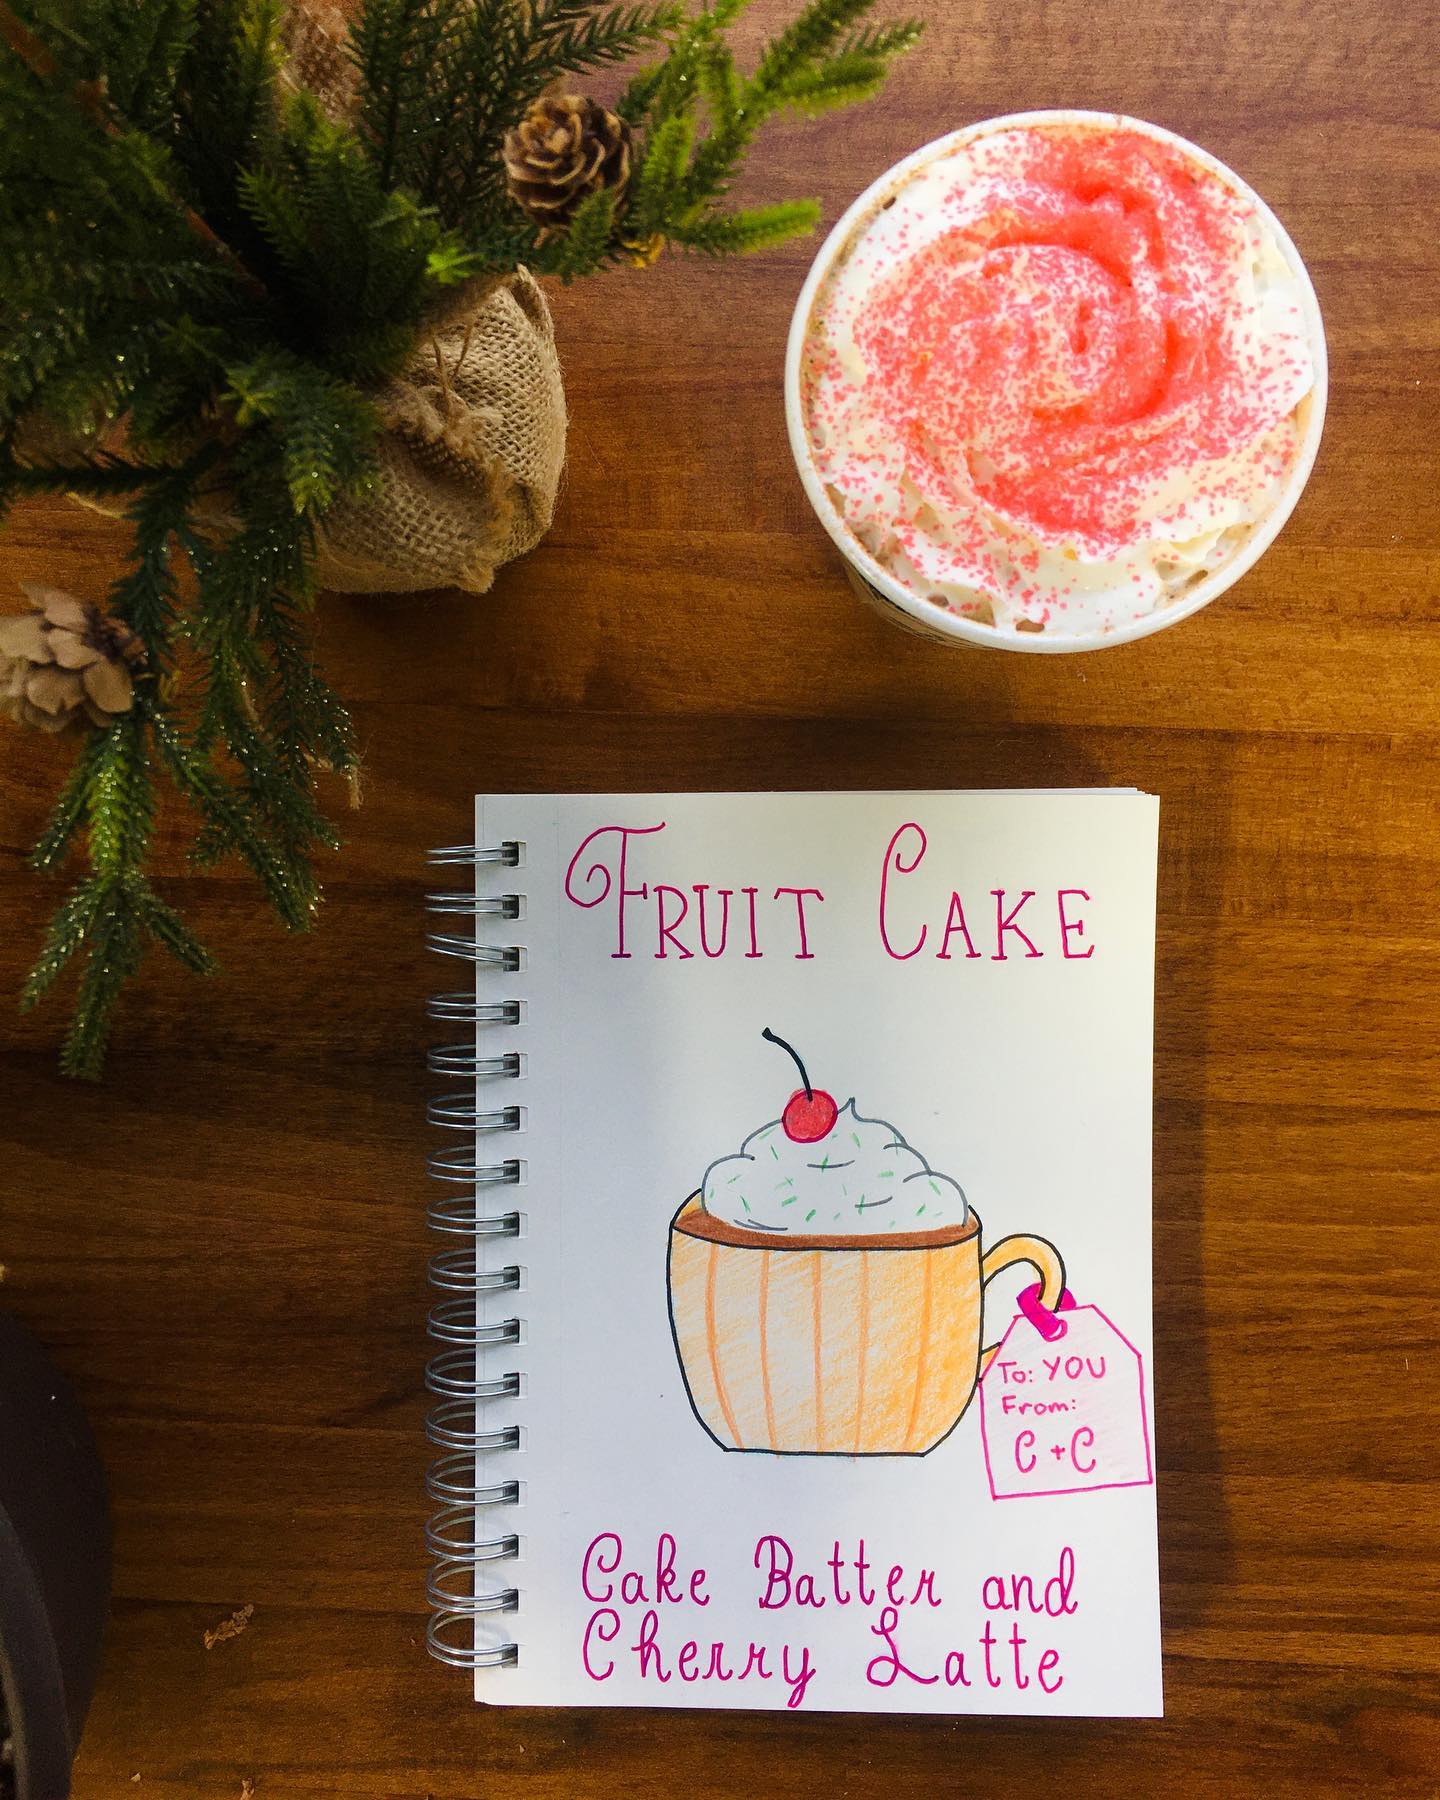 FRUIT CAKE
To: YOU
From:
C + C
Cake Batter and
Cherry Latte